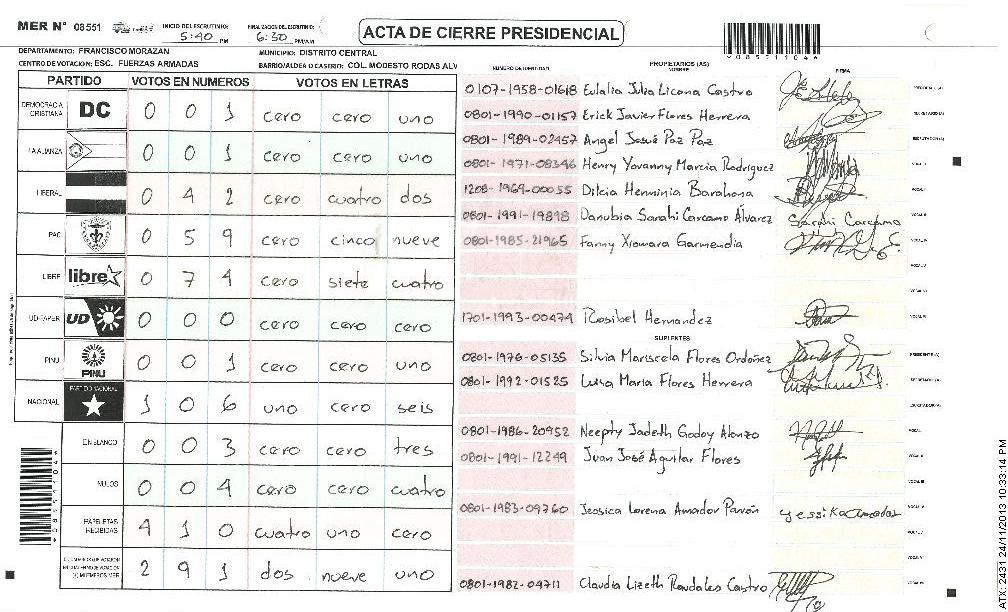 MER N° 08551
INICIO DEL ESCRUTINIO: 5:40 PM
FINALIZACION DEL ESCRUTINIO: 6:30 PM/AM
ACTA DE CIERRE PRESIDENCIAL
*085511046*
DEPARTAMENTO: FRANCISCO MORAZAN
MUNICIPIO: DISTRITO CENTRAL
CENTRO DE VOTACION: ESC. FUERZAS ARMADAS
BARRIO/ALDEA O CASERIO: COL MODESTO RODAS ALV
PARTIDO VOTOS EN NUMEROS VOTOS EN LETRAS
DEMOCRACIA CRISTIANA DC 0 0 1 cero cero uno
LA ALIANZA 0 0 1 cero cero uno
LIBERAL 0 4 2 cero cuatro dos
PAC 0 5 9 cero cinco nueve
LIBRE libre 0 7 4 cero siete cuatro
UD-FAPER UD 0 0 0 cero cero cero
PINU PINU 0 0 1 cero cero uno
NACIONAL PARTIDO NACIONAL 1 0 6 uno cero seis
EN BLANCO 0 0 3 cero cero tres
NULOS 0 0 4 cero cero cuatro
PAPELETAS RECIBIDAS 4 1 0 cuatro uno cero
2 9 1 dos nueve uno
NUMERO DE IDENTIDAD PROPIETARIOS (AS) NOMBRE FIRMA
0107-1958-01618 Eulalia Julia Licona Castro PRESIDENTE(A)
0801-1990-01157 Erick Javier Flores Herrera SECRETARIO(A)
0801-1989-02457 Angel Josué Paz Paz ESCRUTADOR(A)
0801-1971-08346 Henry Yovanny Marcia Rodríguez VOCAL I
1208-1969-00055 Dilcia Herminia Barahona VOCAL II
0801-1991-19898 Danubia Sarahi Carcamo Álvarez Sarahi Carcamo VOCAL III
0801-1985-21965 Fanny Xiomara Garmendia VOCAL IV
1701-1993-00474 Rosibel Hernandez
SUPLENTES
0801-1976-05135 Silvia Mariscela Flores Ordoñez PRESIDENTE(A)
0801-1992-01525 Luisa Maria Flores Herrera SECRETARIO(A)
ESCRUTADOR(A)
0801-1986-20952 Neepty Jadeth Godoy Alonzo VOCAL I
0801-1991-12249 Juan José Aguilar Flores VOCAL II
0801-1983-09760 Jessica Lorena Amador Pavón Yessika Amador
0801-1982-09711 Claudia Lizeth Raudales Castro
ATX-2431 24/11/2013 10:33:14 PM